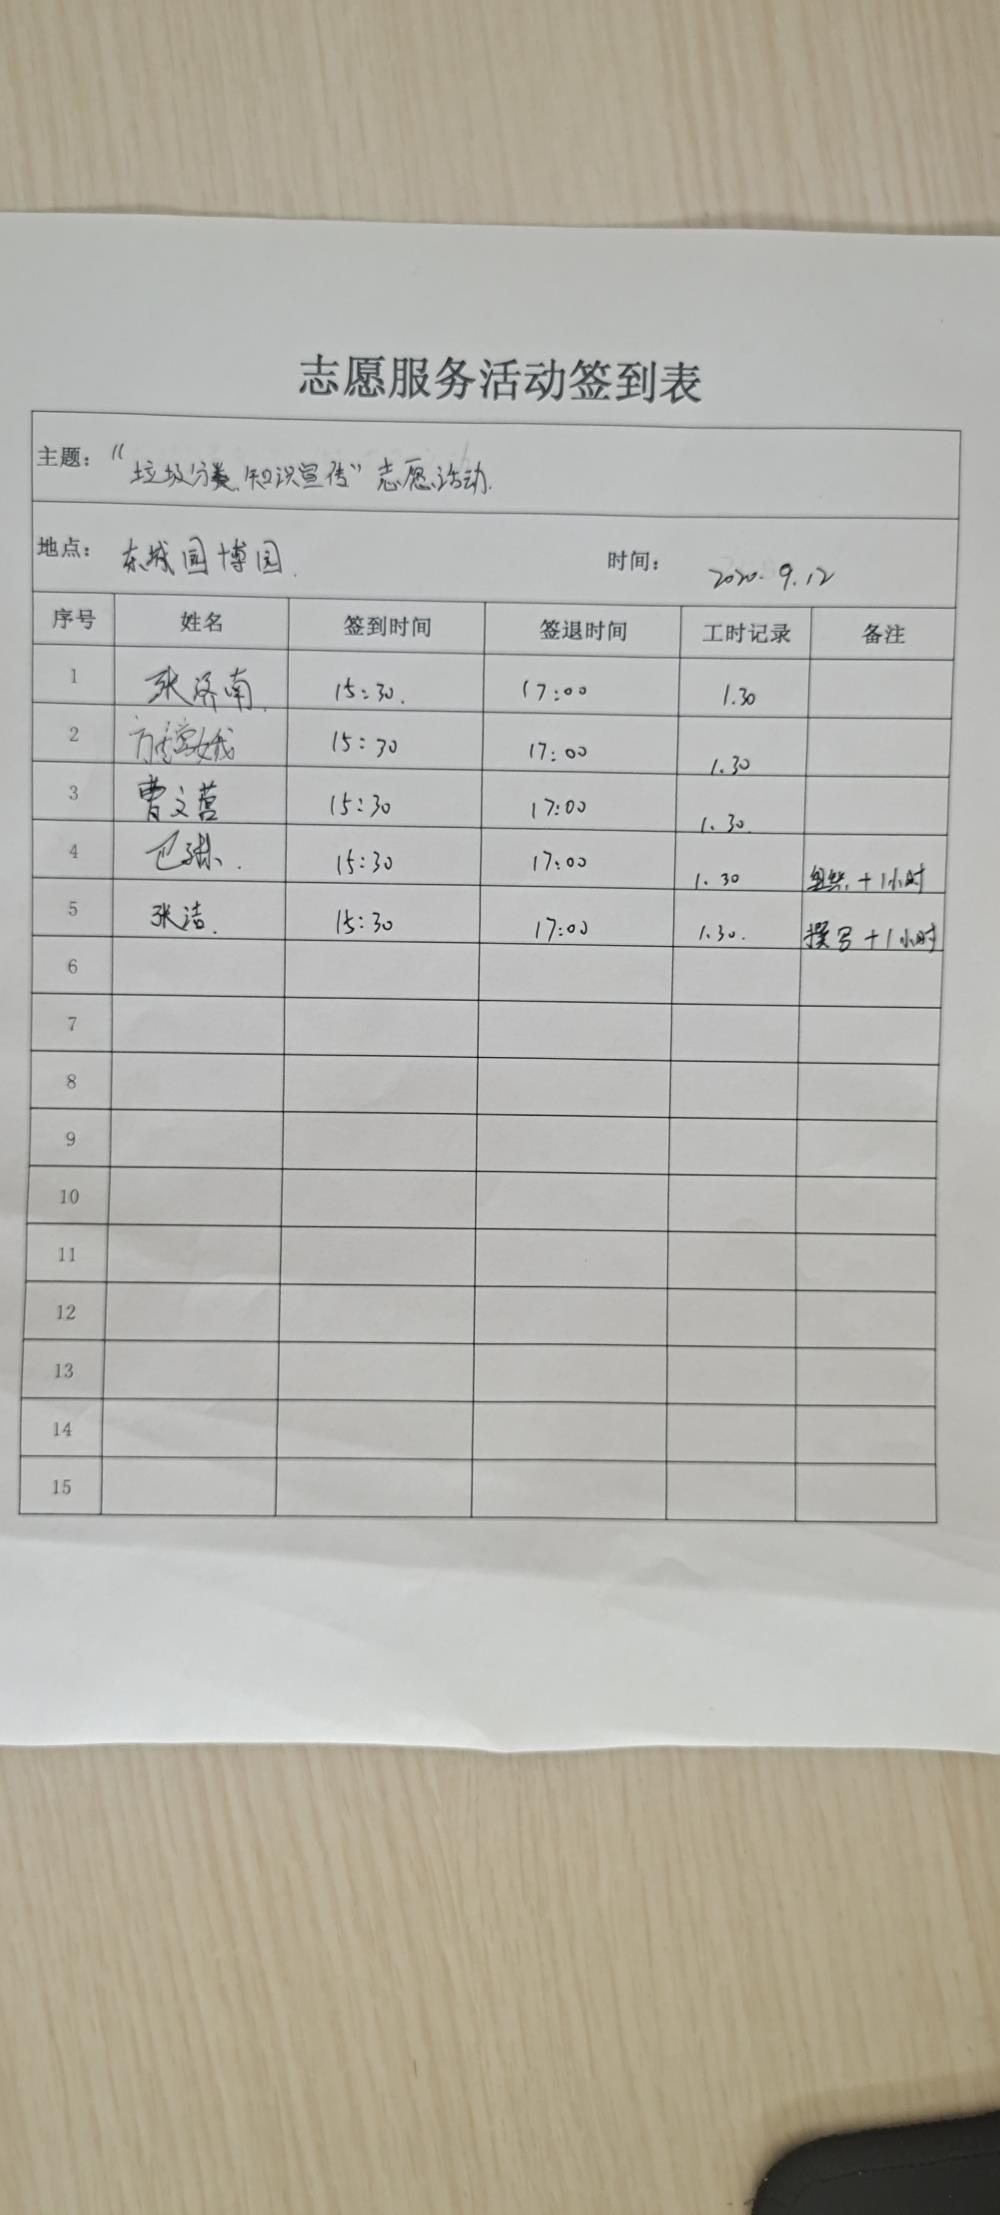 志愿服务活动签到表
主题：“垃圾分类知识宣传”志愿活动.
地点：东城园博园. 时间：2020.9.12
序号 姓名 签到时间 签退时间 工时记录 备注
1 张济南. 15:30. 17:00 1.30
2 15:30 17:00 1.30
3 曹文营 15:30 17:00 1.30.
4 15:30 17:00 1.30 组织.+1小时
5 张洁. 15:30 17:00 1.30. 撰写+1小时
6
7
8
9
10
11
12
13
14
15